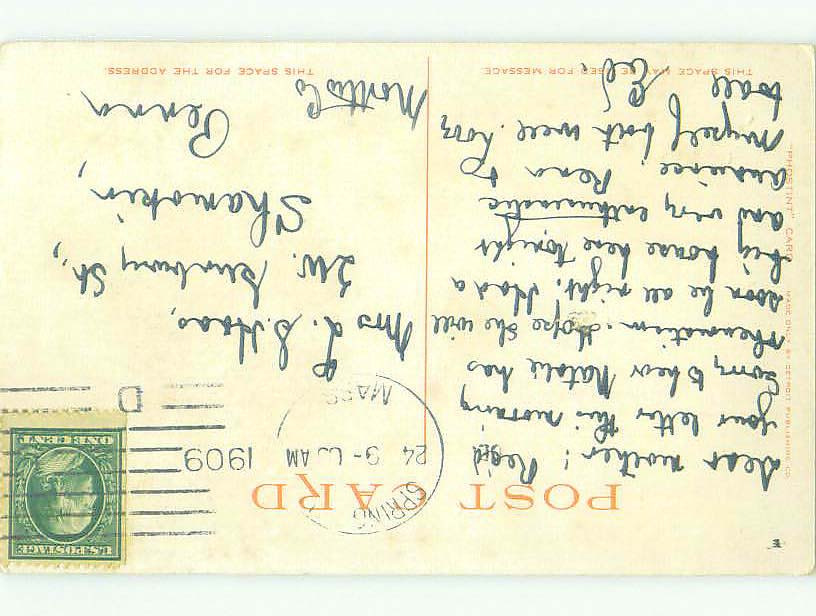 POST CARD
THIS SPACE MAY BE USED FOR MESSAGE
THIS SPACE FOR THE ADDRESS
"PHOSTINT" CARD
MADE ONLY BY DETROIT PUBLISHING CO.
Dear mother! Rec'd
your letter this morning
Sorry to hear Natalie has
rheumatism. Hope she will
soon be all right. Had a
big house here tonight
and very enthusiastic
audience Rena &
Myself both well. Love
to all Ed.
SPRING
24 9- AM
1909
MASS
D
U.S. POSTAGE
ONE CENT
Mrs L. S. Haas,
2 W. Sunbury St,
Shamokin,
North'd Co Penna